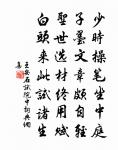 少時操筆坐中庭
子墨文章頗自輕
聖世選材終用賦
白頭來此試諸生
王安石試院中詞典網
集